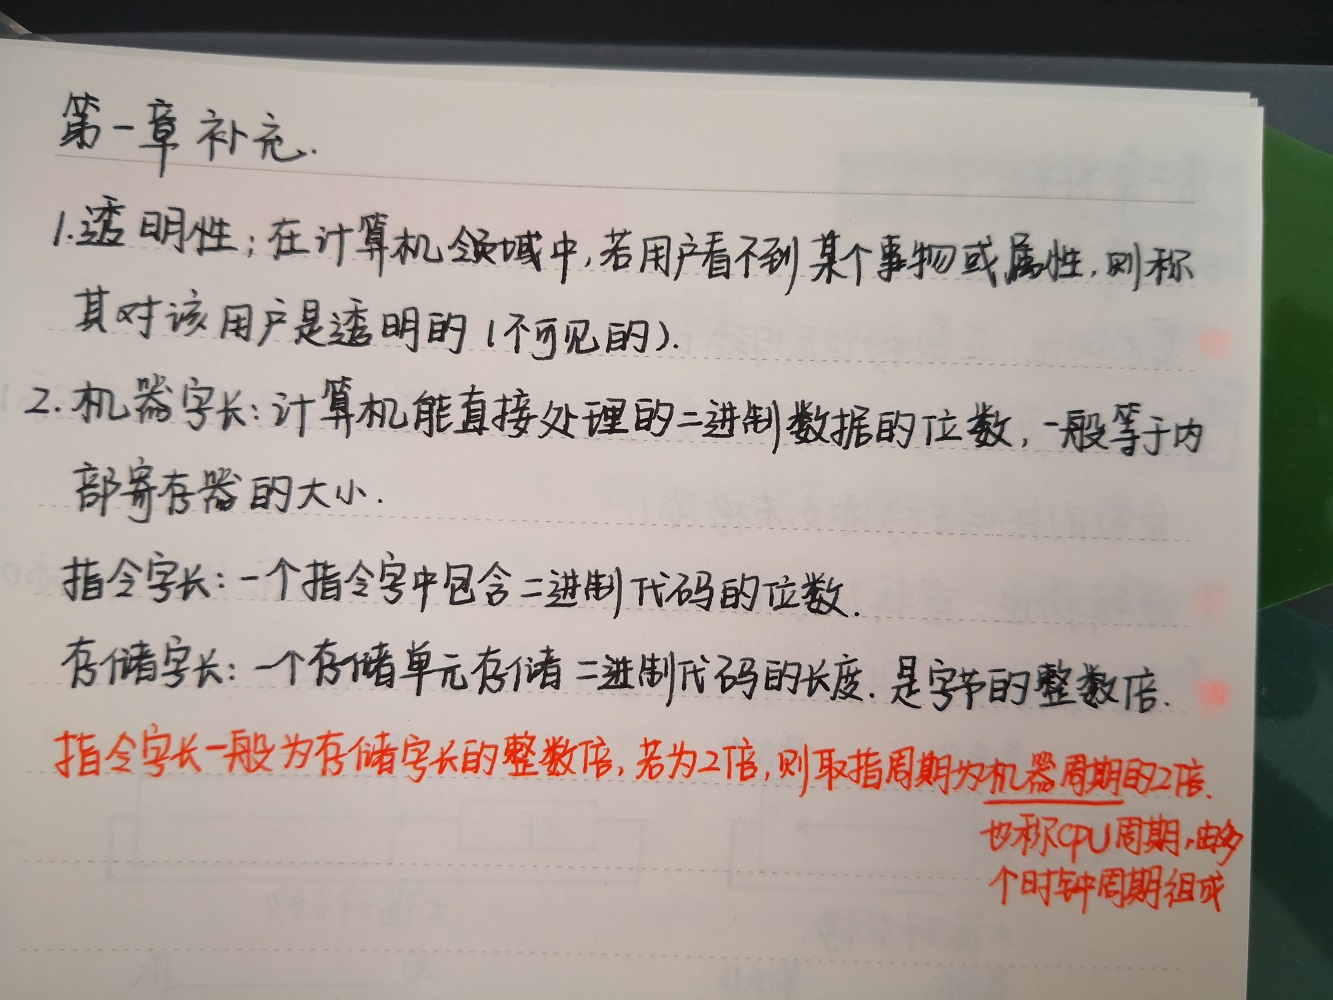 第一章补充.
1.透明性:在计算机领域中,若用户看不到某个事物或属性,则称
其对该用户是透明的(不可见的).
2.机器字长:计算机能直接处理的二进制数据的位数,一般等于内
部寄存器的大小.
指令字长:一个指令字中包含二进制代码的位数.
存储字长:一个存储单元存储二进制代码的长度.是字节的整数倍.
指令字长一般为存储字长的整数倍,若为2倍,则取指周期为机器周期的2倍.
也称CPU周期,由多
个时钟周期组成